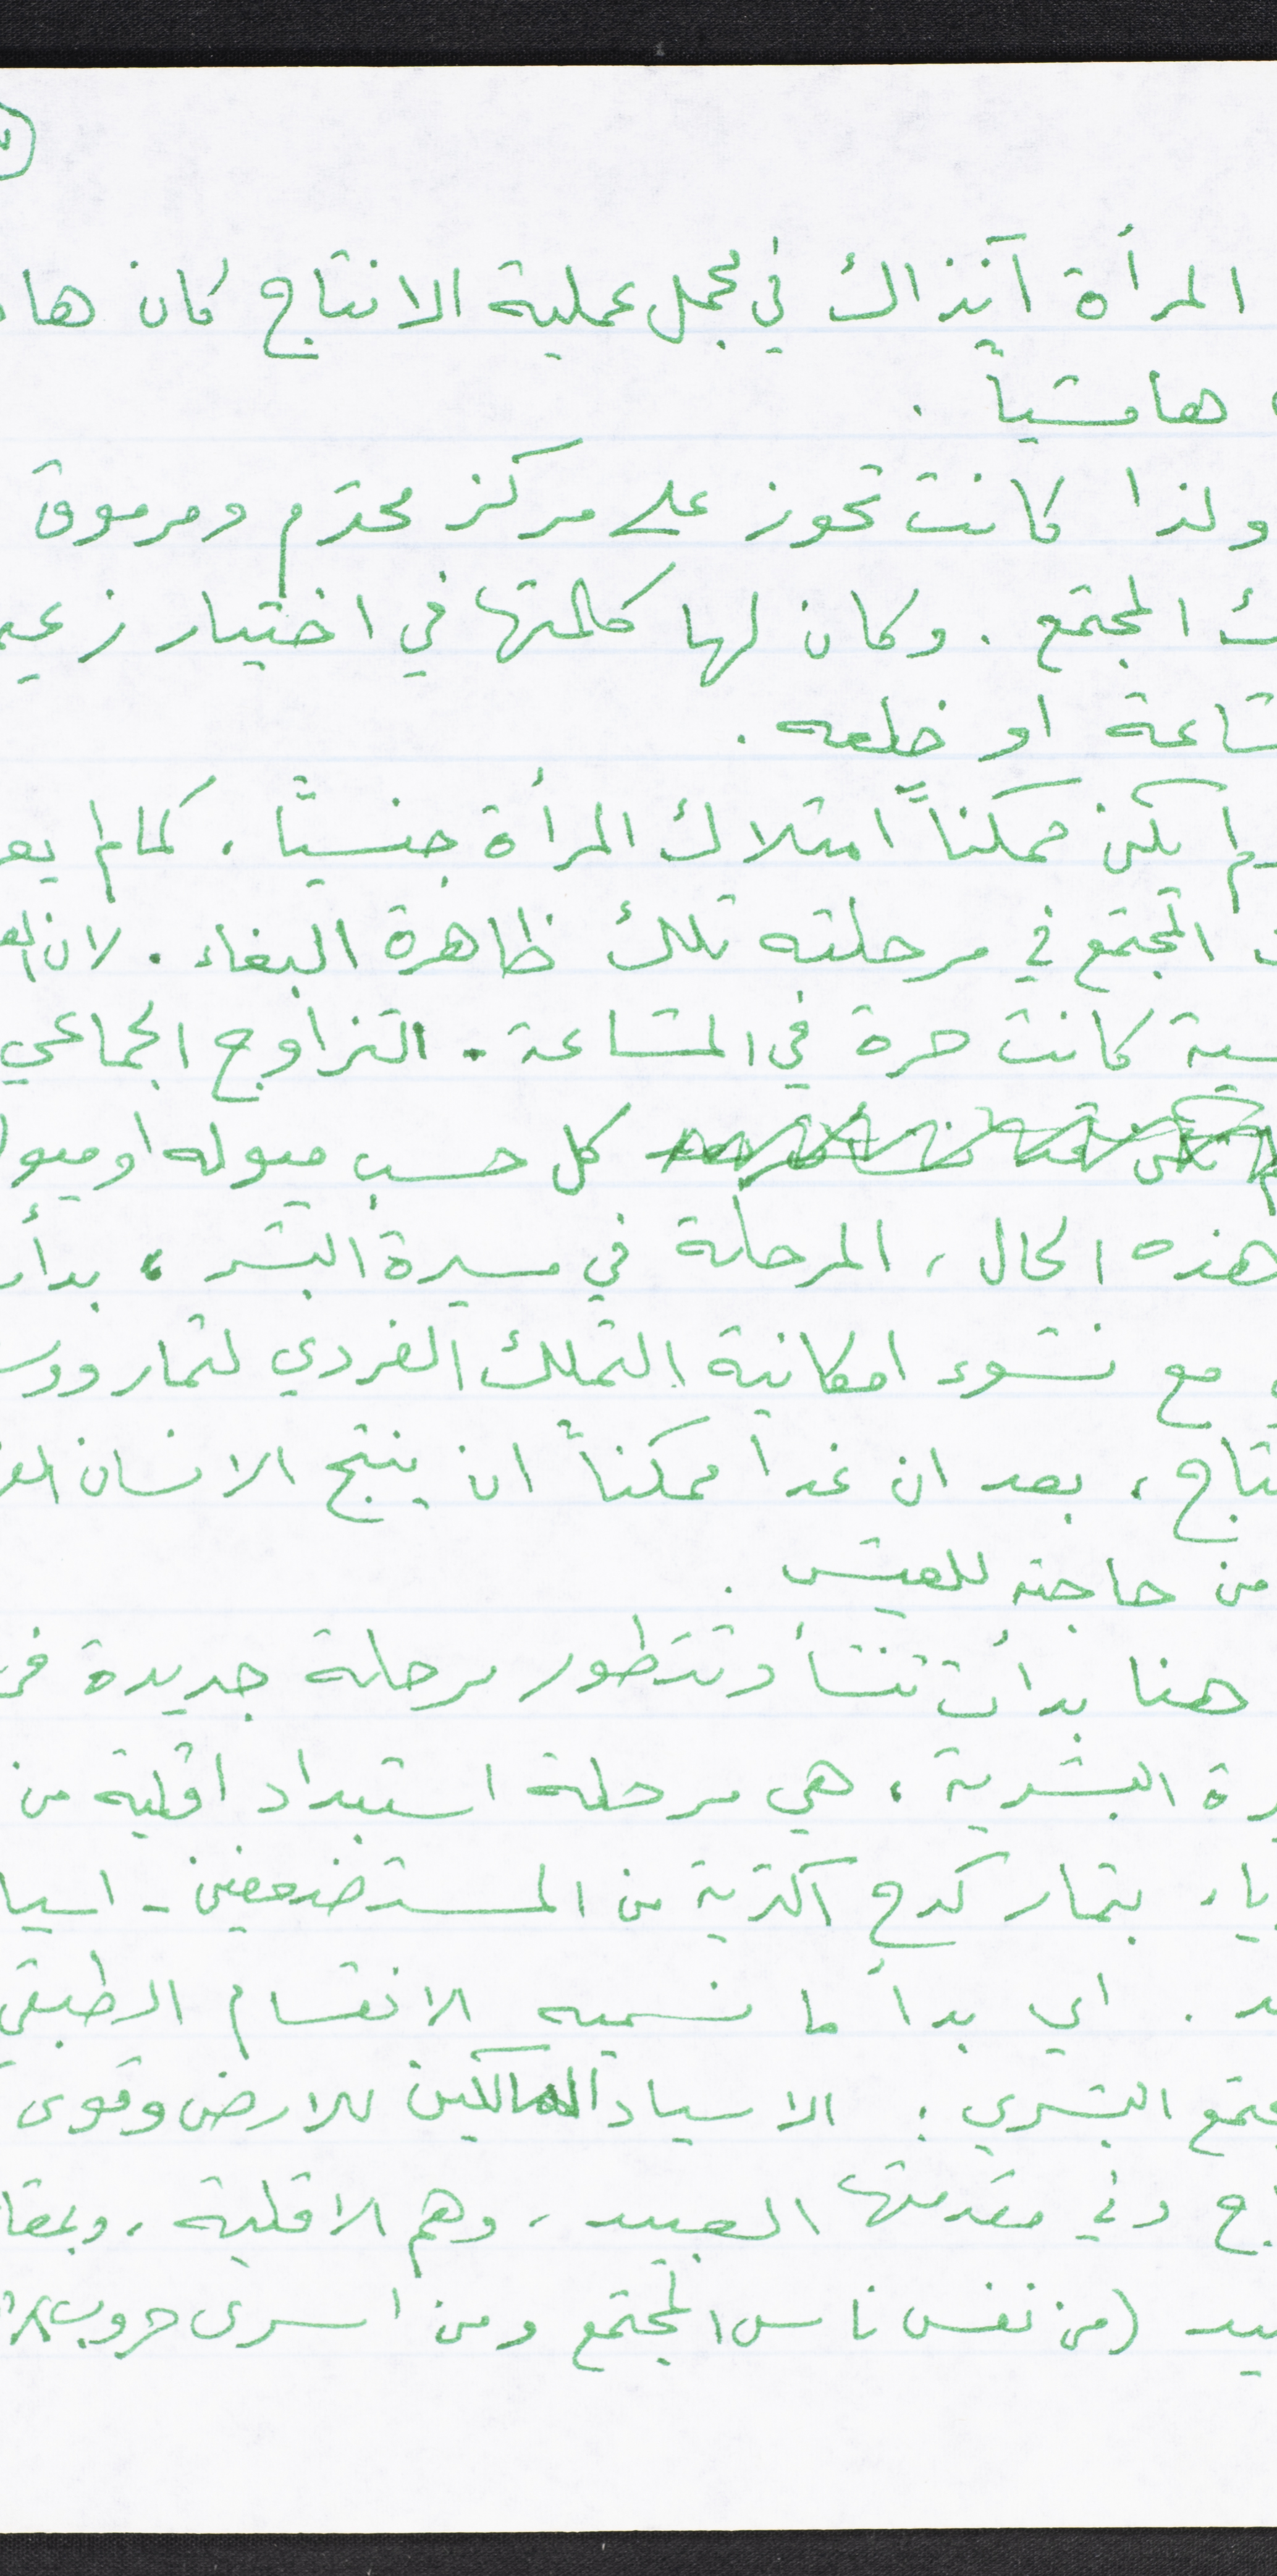 المرأة آنذاك في مجمل عملية الانتاج كان
هامشياً .
ولذا كانت تحوز على مركز محترم ومرموق
المجتمع . وكان لها كلمتها في اختيار
او خلعه .
يكن ممكناً امتلاك المرأة جنسيّاً . كما لم
المجتمع في مرحلته تلك ظاهرة البغاء . لان
كانت حرة في المشاعة . التزاوج الجماعي
كل حسب ميوله او
هذه الحال ، المرحلة في مسيرة البشر ،
مع نشوء امكانية التملك الفردي لثمار
، بعد ان غدا ممكناً ان ينتج الانسان
من حاجته للعيش .
هنا بدأت تنشأ وتتطور مرحلة جديدة
البشرية ، هي مرحلة استبداد اقلية من
بثمار كدح اكثرية من المستضعفين -
. اي بدأ ما نسميه الانقسام الطبقي
البشري : الاسياد المالكين للارض وقوى
وفي مقدمتها العبيد ، وهم الاقلية ،
(من نفس ناس المجتمع ومن اسرى حروب